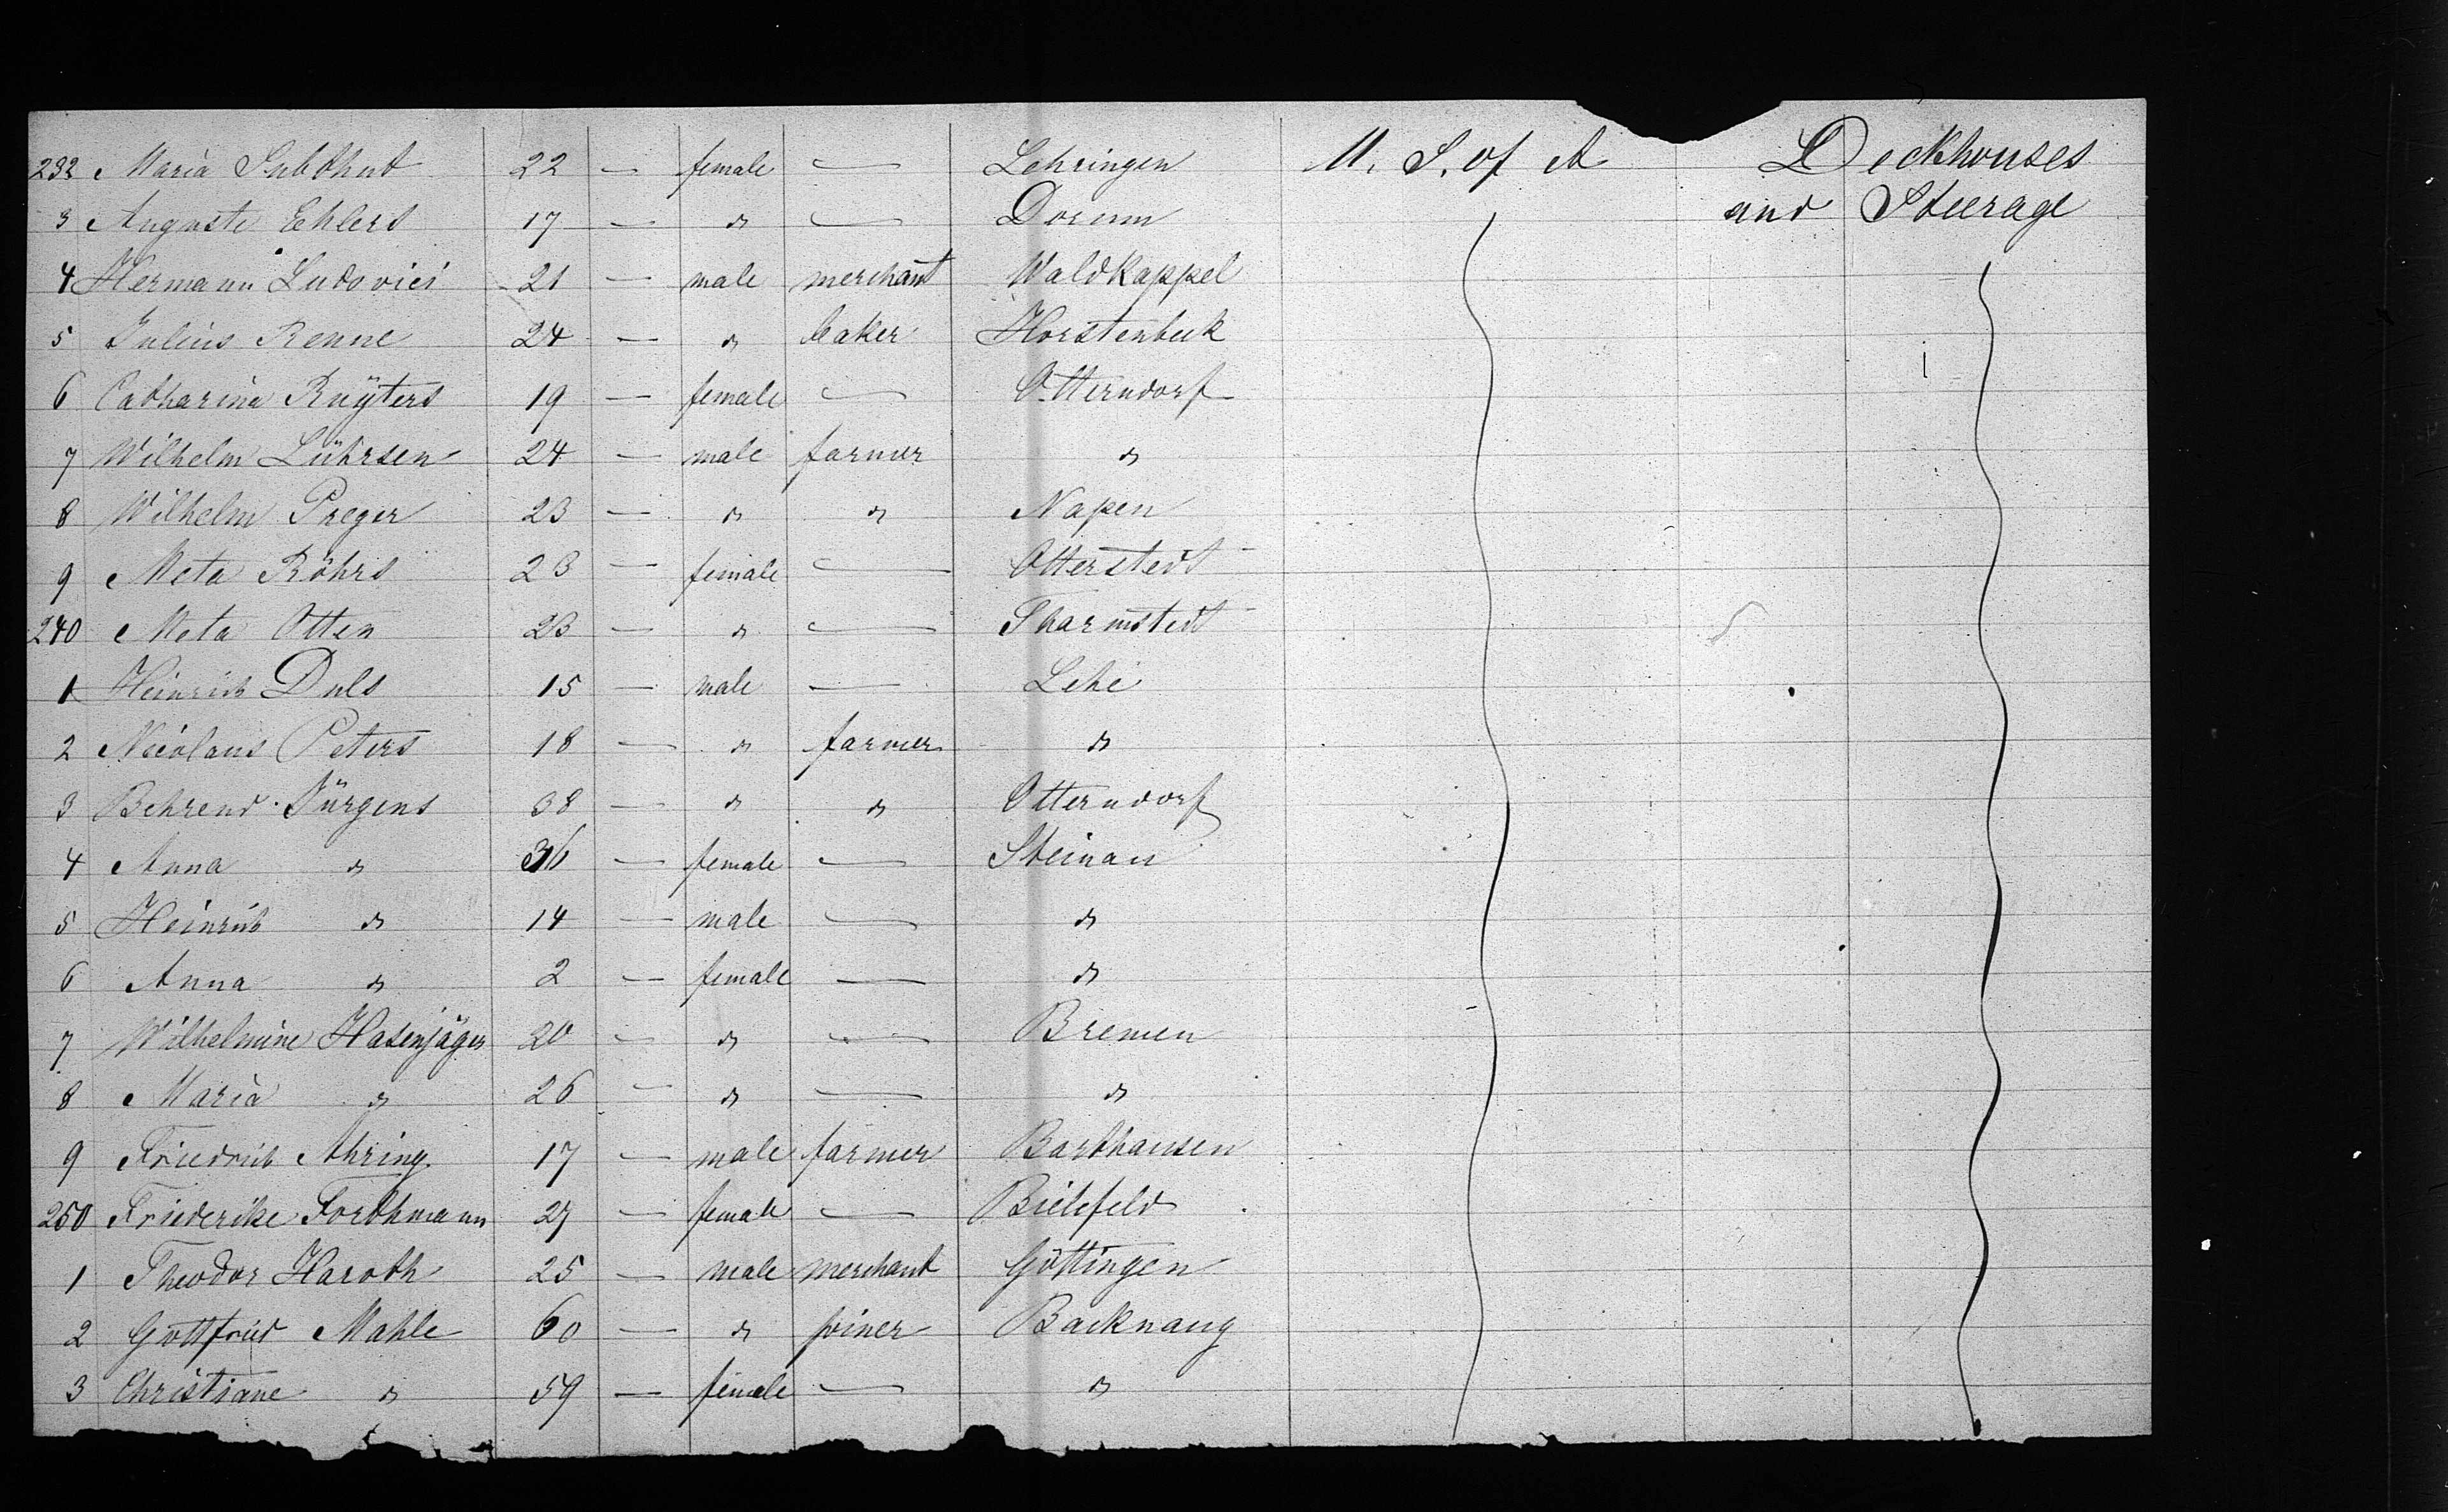 232 Maria Subthut 22 — female — Lehringen U. S. of A Deckhouses
3 Auguste Ehlers 17 — " — Dorum and Steerage
4 Hermann Ludovici 21 — male merchant Waldkappel
5 Julius Renne 24 — " baker Horstenbeck
6 Catharina Ruÿters 19 — female — Otterndorf
7 Wilhelm Lührsen 24 — male farmer "
8 Wilhelm Preger 23 — " " Napen
9 Meta Röhrs 23 — female — Otterstedt
240 Meta Otten 23 — " — Tharmstedt
1 Heinrich Duls 15 — male — Lehe
2 Nicolaus Peters 18 — " farmer "
3 Behrend Jürgens 38 — " " Otterndorf
4 Anna " 36 — female — Steinau
5 Heinrich " 14 — male — "
6 Anna " 2 — female — "
7 Wilhelmine Hasenjäger 20 — " — Bremen
8 Maria " 26 — " — "
9 Friedrich Ahring 17 — male farmer Barkhausen
250 Friederike Fordhmann 27 — female — Bielefeld
1 Theodor Haroth 25 — male merchant Göttingen
2 Gottfried Mahle 60 — " joiner Backnang
3 Christiane " 59 — female — "